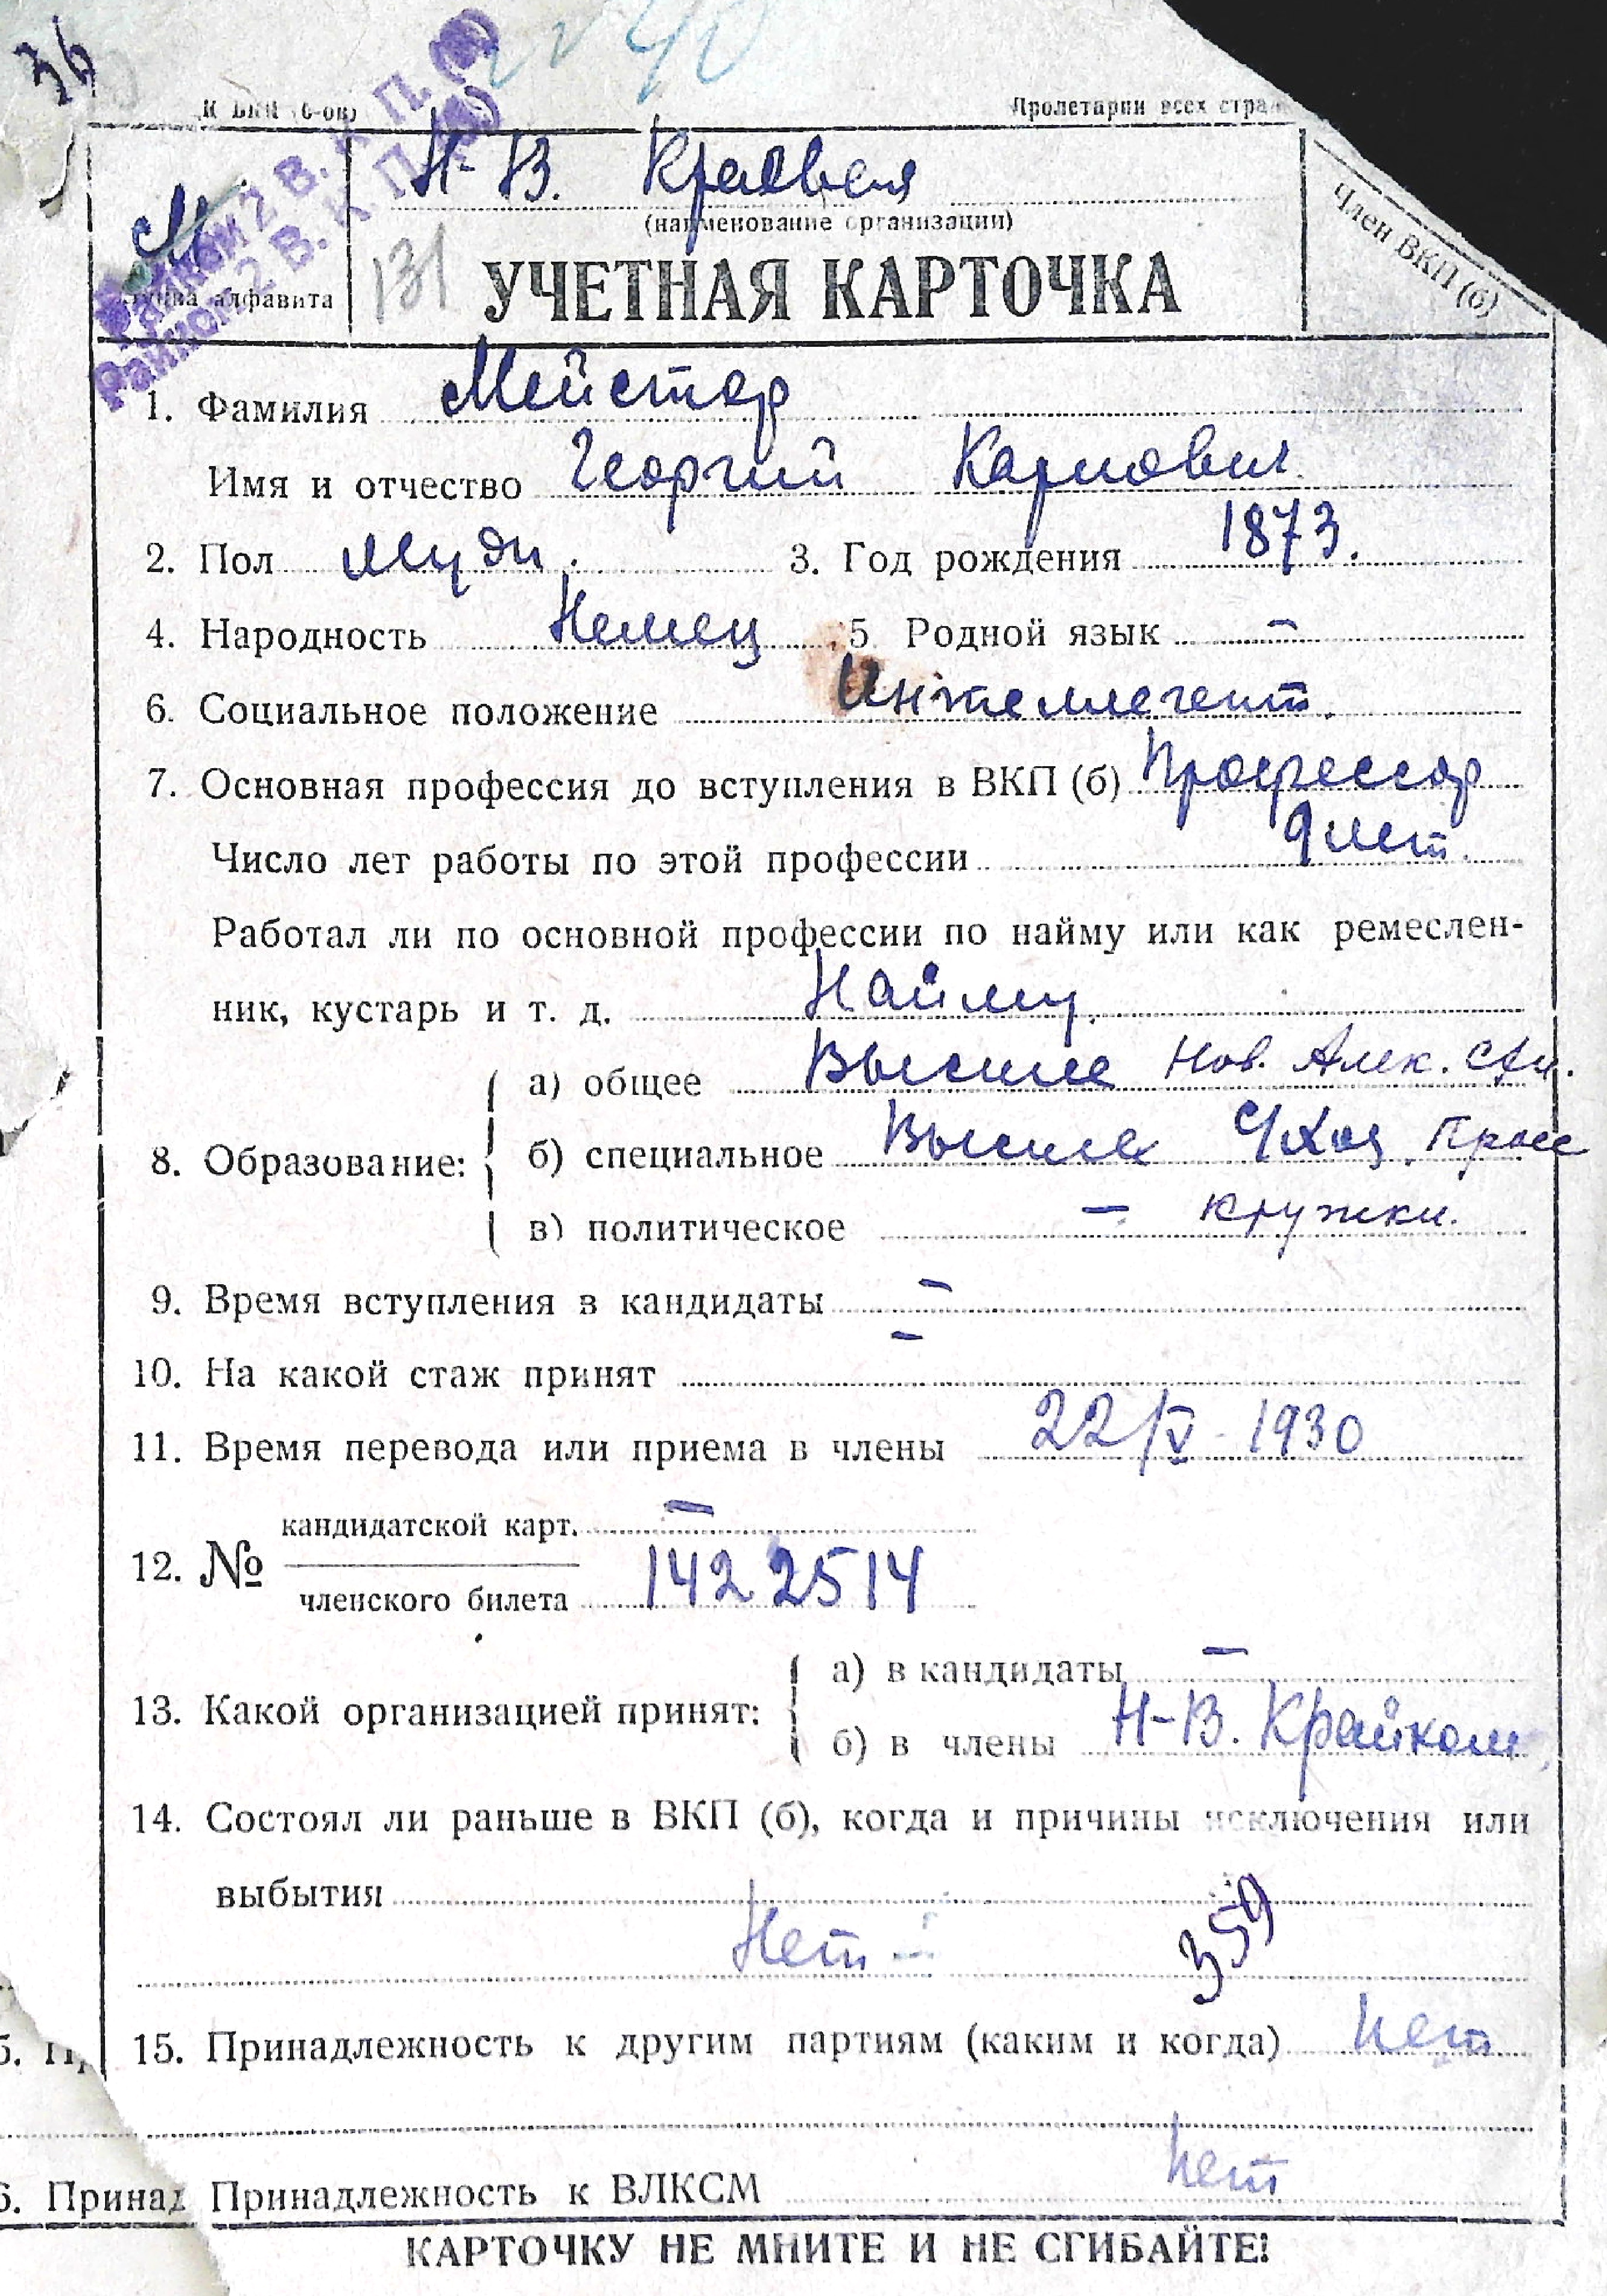 36
22 40
ЦК ВКП (б-ов) Пролетарии всех стра
Н-В. Краевая
(наименование организации)
М
131
УЧЕТНАЯ КАРТОЧКА
Буква алфавита
Член ВКП (б)
Райком 2 В. К. П. (б)
Райком 2 В. К. П. (б)
1. Фамилия Мейстер
Имя и отчество Георгий Карлович
2. Пол Муж. 3. Год рождения 1873.
4. Народность Немец 5. Родной язык —
6. Социальное положение Интеллегент.
7. Основная профессия до вступления в ВКП (б) Профессор
Число лет работы по этой профессии 9 лет.
Работал ли по основной профессии по найму или как ремеслен-
ник, кустарь и т. д. Найму.
8. Образование:
а) общее Высшее Нов. Алек.
б) специальное Высшее с/хоз.
в) политическое — кружки.
9. Время вступления в кандидаты —
10. На какой стаж принят —
11. Время перевода или приема в члены 22/V-1930
12. №
кандидатской карт. —
членского билета 1422514
13. Какой организацией принят:
а) в кандидаты —
б) в члены Н-В. Крайком
14. Состоял ли раньше в ВКП (б), когда и причины исключения или
выбытия
Нет —
359
15. Принадлежность к другим партиям (каким и когда) Нет
6. Принад Принадлежность к ВЛКСМ Нет
КАРТОЧКУ НЕ МНИТЕ И НЕ СГИБАЙТЕ!